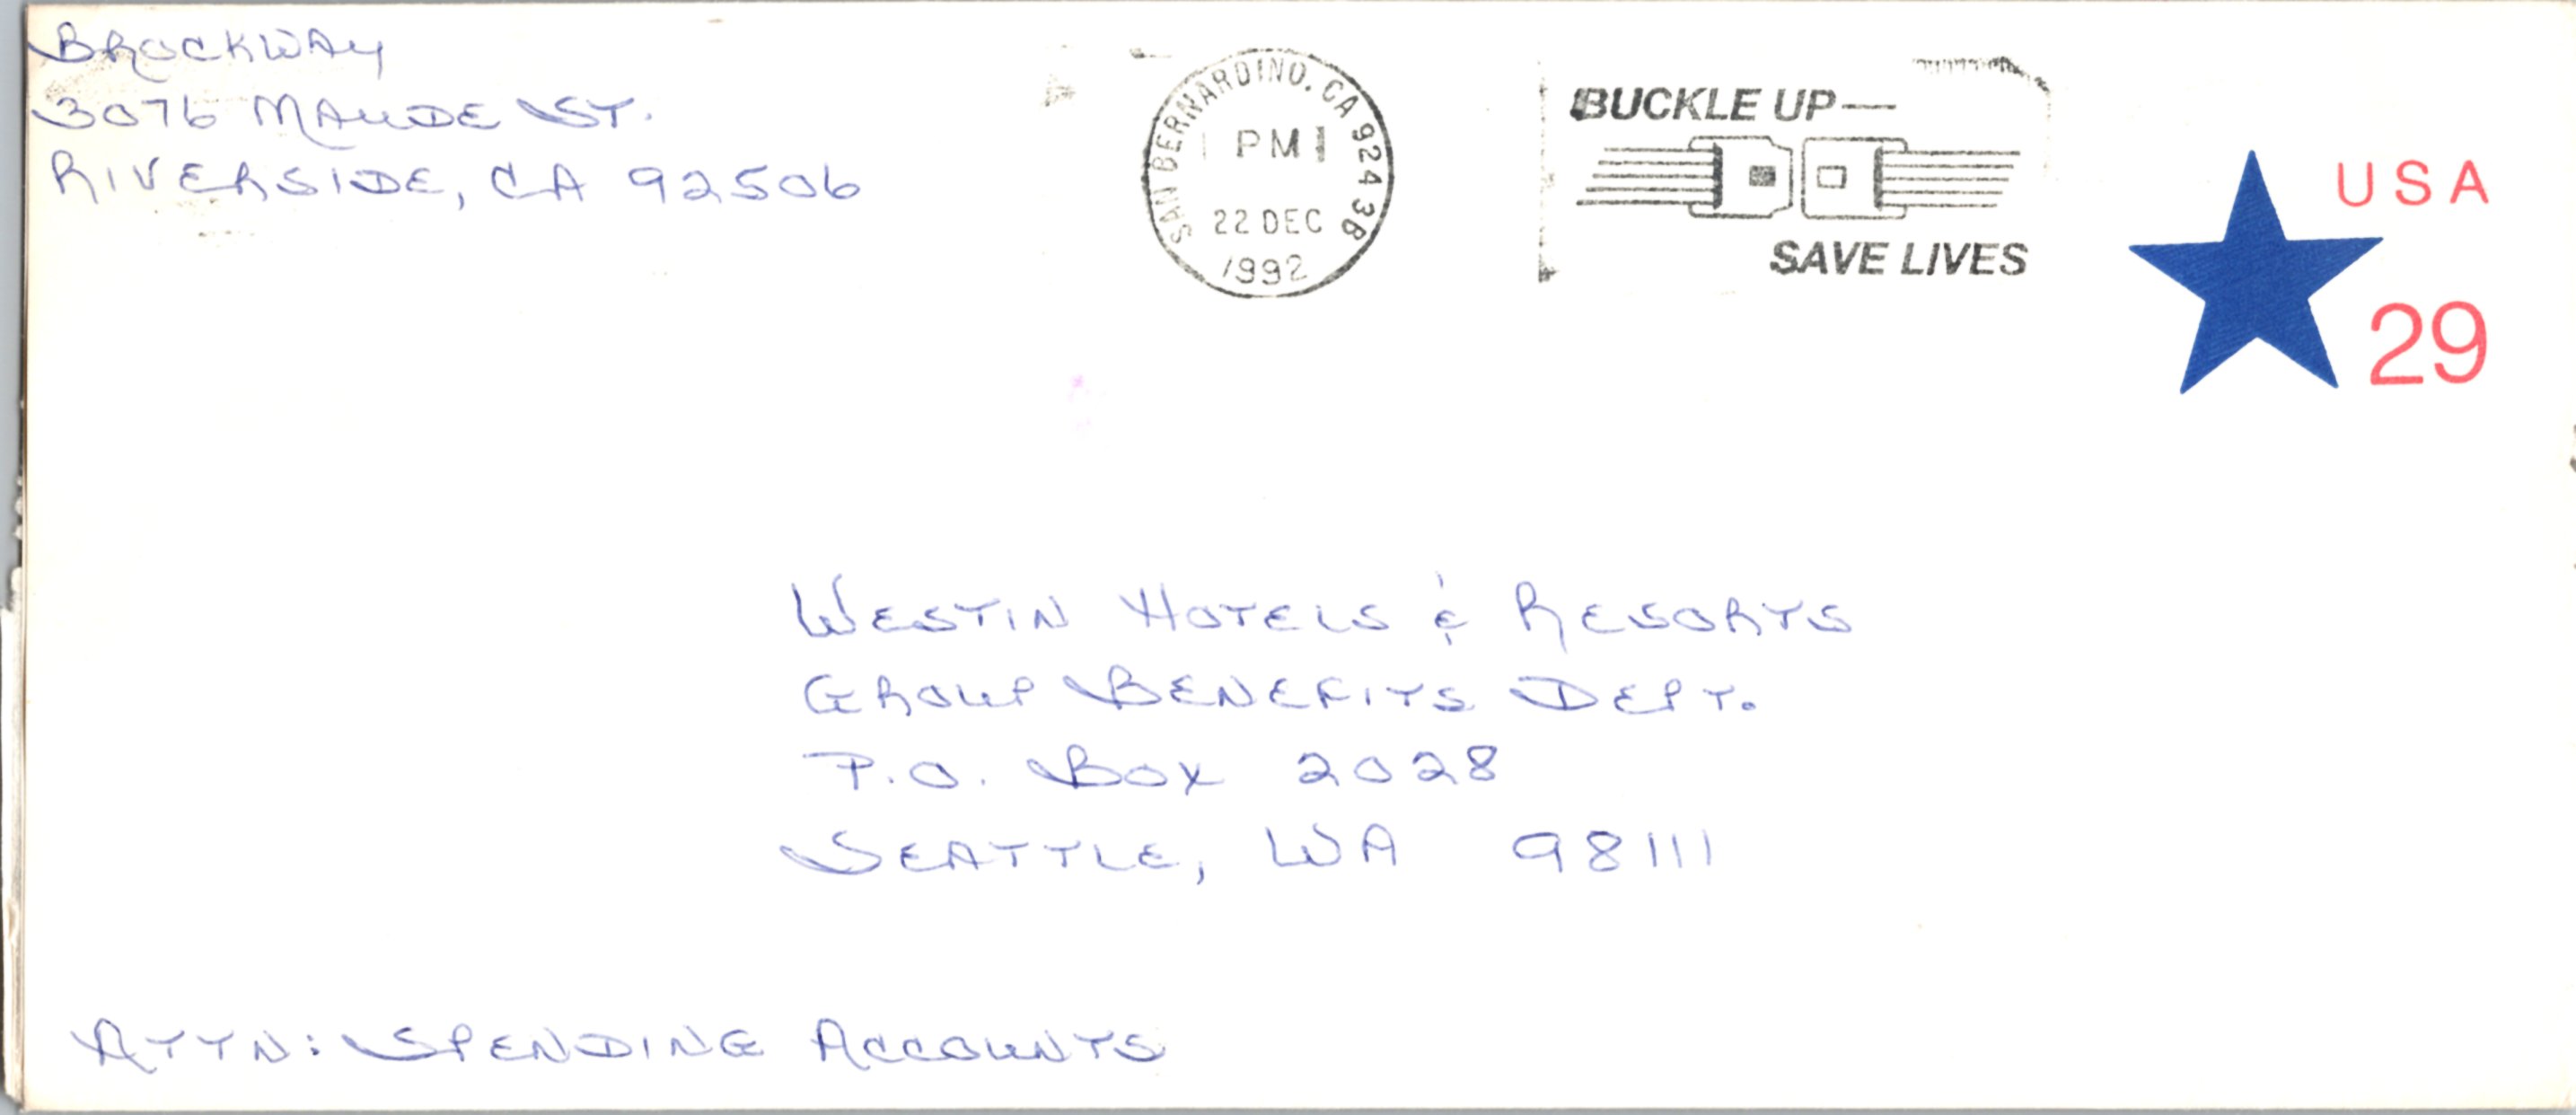 BROCKWAY
3076 MAUDE ST.
RIVERSIDE, CA 92506
SAN BERNARDINO, CA 924 3B
PM
22 DEC
1992
BUCKLE UP—
SAVE LIVES
USA
29
WESTIN HOTELS & RESORTS
GROUP BENEFITS DEPT.
P.O. BOX 2028
SEATTLE, WA 98111
ATTN: SPENDING ACCOUNTS